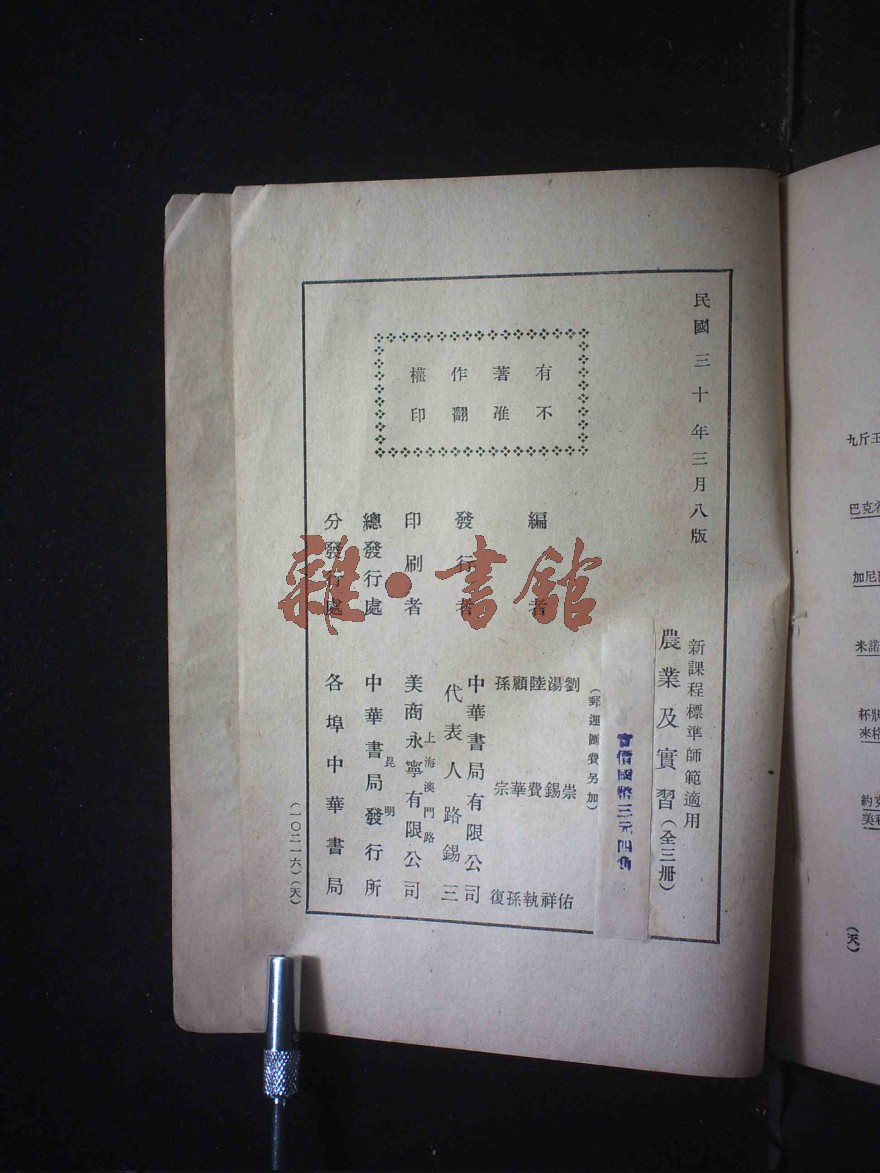 民國三十年三月八版
新課程標準師範適用
農業及實習（全三冊）
實價國幣三元四角
（郵運匯費另加）
有著作權
不准翻印
編者
劉崇佑
湯錫祥
陸費執
顧華孫
孫宗復
發行者
中華書局有限公司
代表人路錫三
印刷者
上海澳門路
美商永寧有限公司
總發行處
昆明
中華書局發行所
分發行處
各埠中華書局
（一〇二一六）（天）
雜·書館
九斤
巴克
加尼
米諾
杯狀
來格
約克
（天）